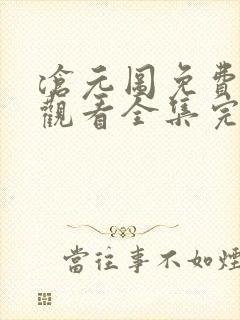 滄元圖免費
觀看全集完
當往事不如煙